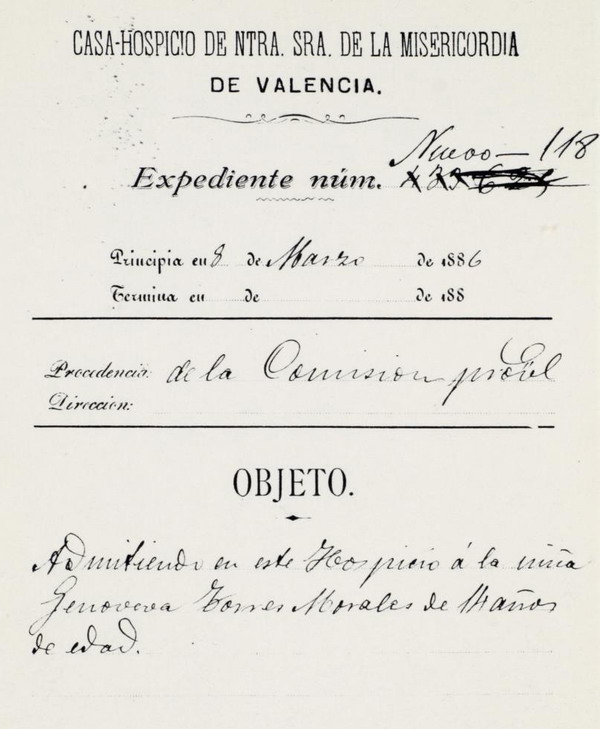 CASA-HOSPICIO DE NTRA. SRA. DE LA MISERICORDIA
DE VALENCIA.
Nuevo — 118
Expediente núm.
Principia en 8 de Marzo de 1886
Termina en de de 188
Procedencia: de la Comision proel
Direccion:
OBJETO.
Admitiendo en este Hospicio á la niña
Genoveva Torres Morales de 14 años
de edad.